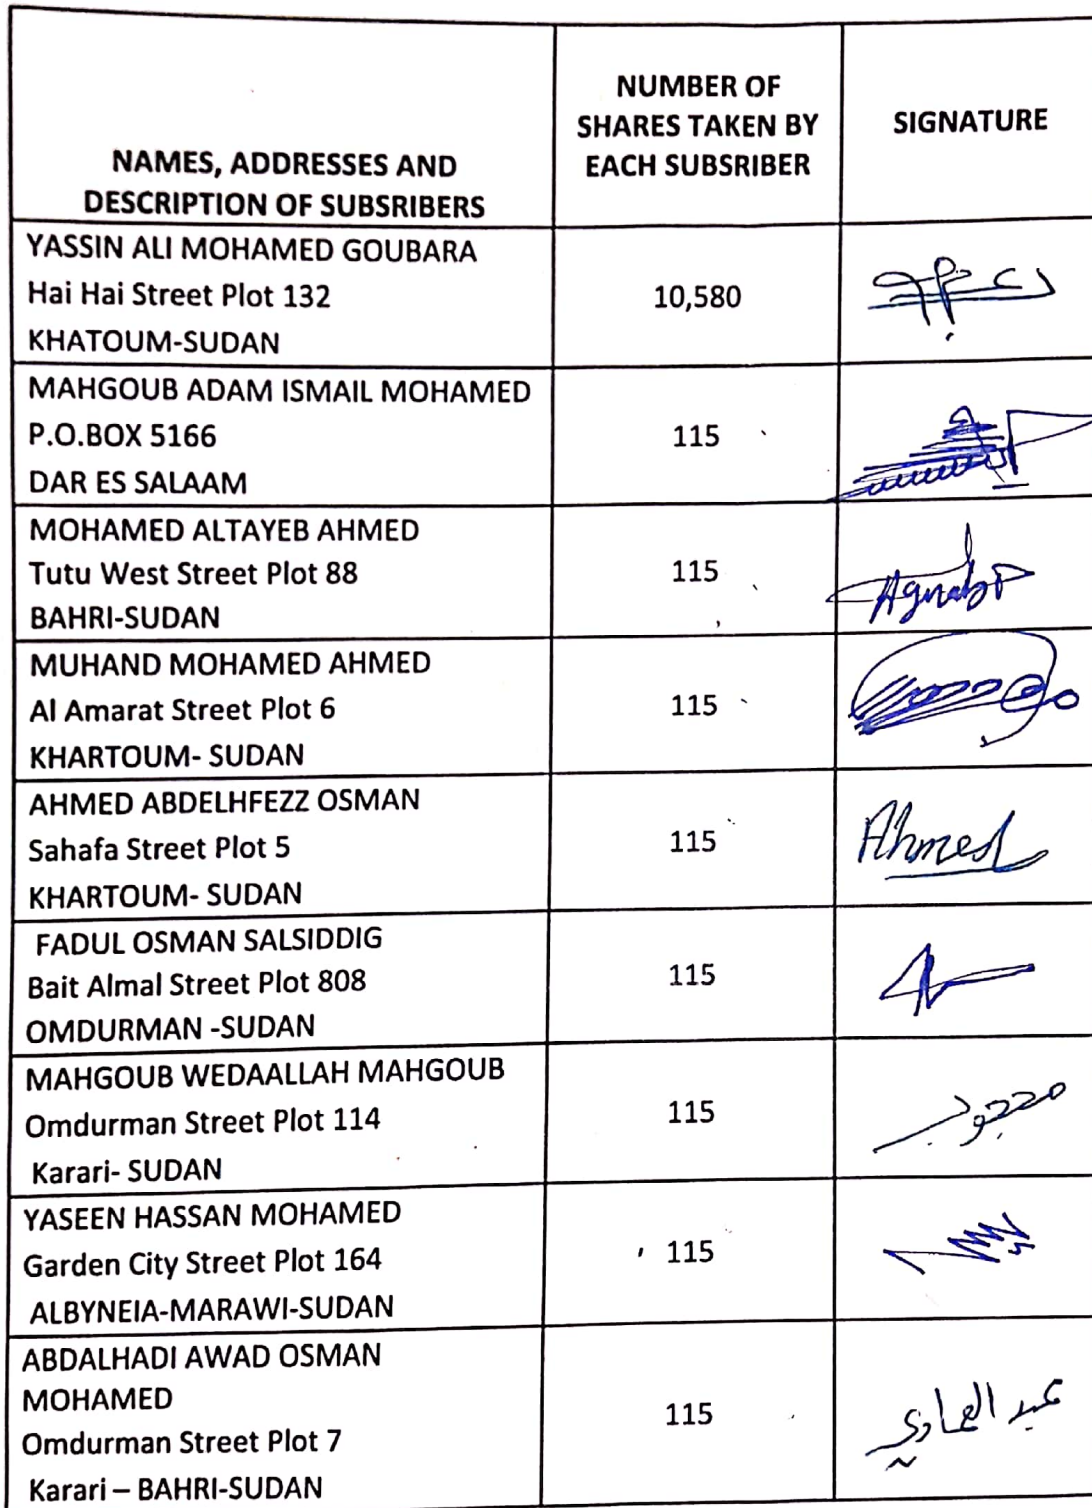 NAMES, ADDRESSES AND
DESCRIPTION OF SUBSRIBERS
NUMBER OF
SHARES TAKEN BY
EACH SUBSRIBER
SIGNATURE
YASSIN ALI MOHAMED GOUBARA
Hai Hai Street Plot 132
KHATOUM-SUDAN
10,580
MAHGOUB ADAM ISMAIL MOHAMED
P.O.BOX 5166
DAR ES SALAAM
115
MOHAMED ALTAYEB AHMED
Tutu West Street Plot 88
BAHRI-SUDAN
115
MUHAND MOHAMED AHMED
Al Amarat Street Plot 6
KHARTOUM- SUDAN
115
AHMED ABDELHFEZZ OSMAN
Sahafa Street Plot 5
KHARTOUM- SUDAN
115
Ahmed
FADUL OSMAN SALSIDDIG
Bait Almal Street Plot 808
OMDURMAN -SUDAN
115
MAHGOUB WEDAALLAH MAHGOUB
Omdurman Street Plot 114
Karari- SUDAN
115
محجوب
YASEEN HASSAN MOHAMED
Garden City Street Plot 164
ALBYNEIA-MARAWI-SUDAN
115
ABDALHADI AWAD OSMAN
MOHAMED
Omdurman Street Plot 7
Karari – BAHRI-SUDAN
115
عبد الهادي